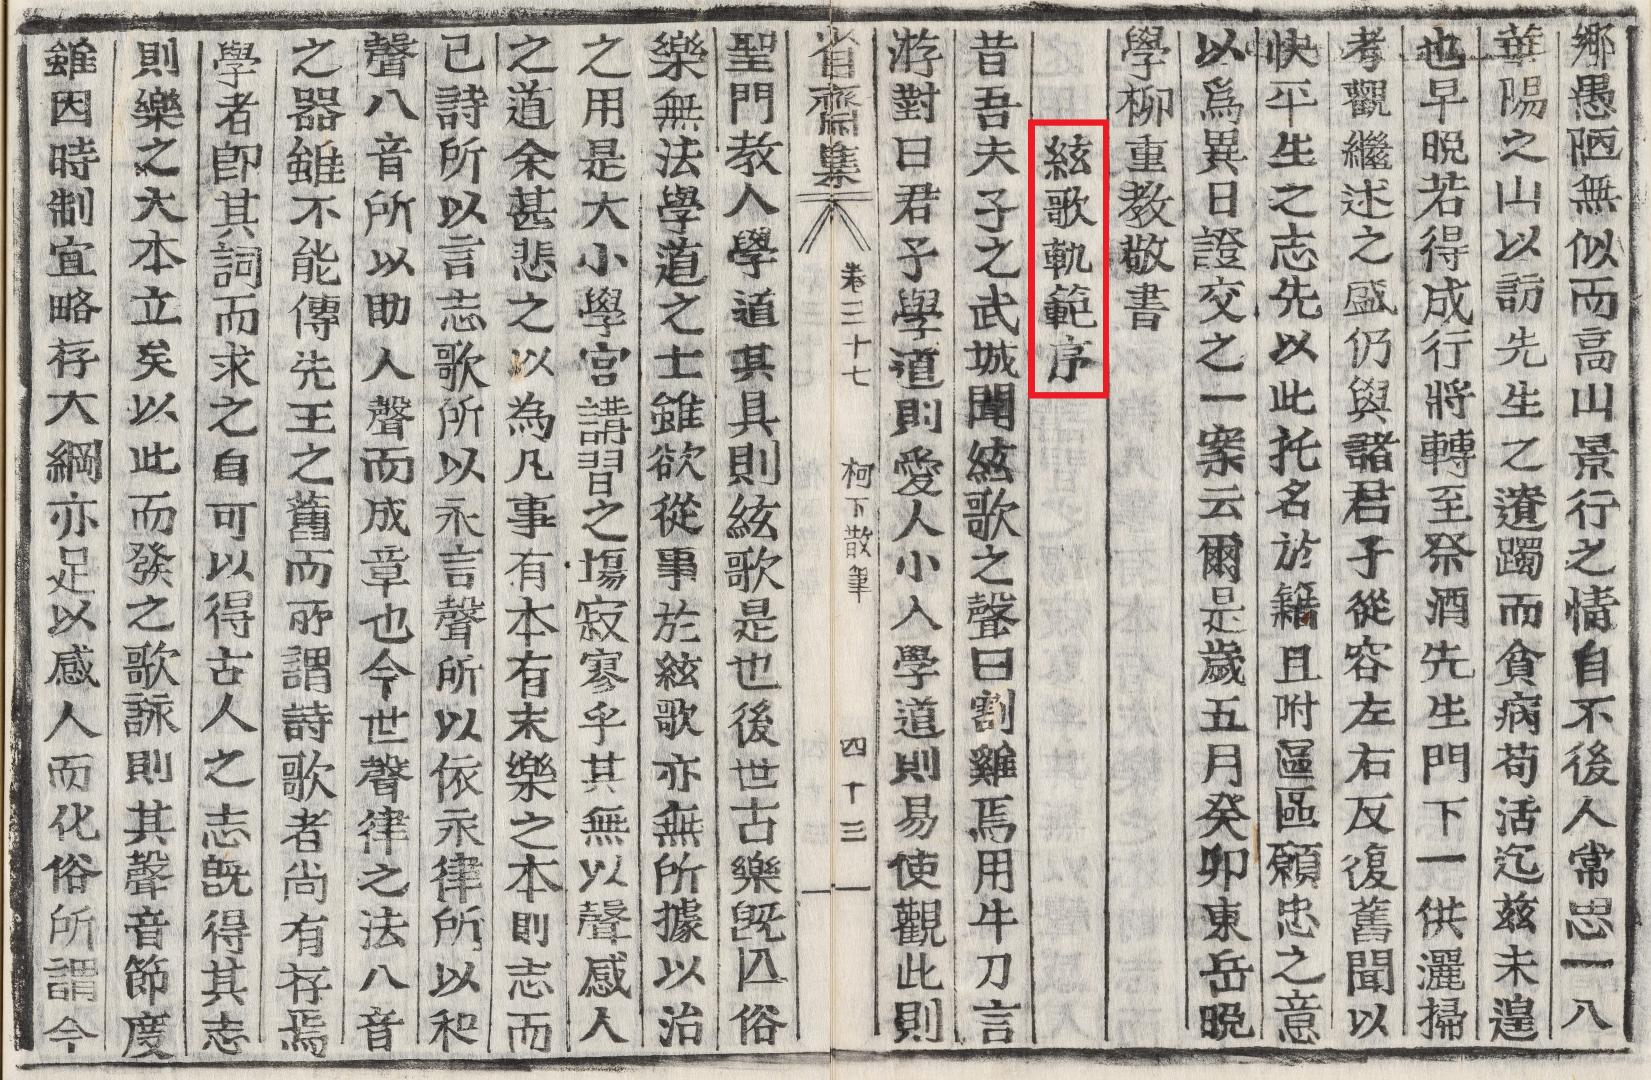 鄉愚陋無似而高山景行之情自不後人常思一入
華陽之山以訪先生之遼躅而貧病苟活迄玆未遑
也早晩若得成行將轉至祭酒先生門下一供灑掃
考觀繼述之盛仍與諸君子從容左右反復舊聞以
快平生之志先以此托名於籍且附區區願忠之意
以爲異日證交之一案云爾是歲五月癸卯東岳晩
學柳重教敬書
絃歌軌範序
昔吾夫子之武城聞絃歌之聲曰割雞焉用牛刀言
游對曰君子學道則愛人小人學道則易使觀此則
省齋集
卷三十七
柯下散筆
四十三
聖門教人學道其具則絃歌是也後世古樂旣亾俗
樂無法學道之士雖欲從事於絃歌亦無所據以治
之用是大小學宮講習之塲寂寥乎其無以聲感人
之道余甚悲之以為凡事有本有末樂之本則志而
已詩所以言志歌所以永言聲所以依永律所以和
聲八音所以助人聲而成章也今世聲律之法八音
之器雖不能傳先王之舊而所謂詩歌者尚有存焉
學者卽其詞而求之自可以得古人之志旣得其志
則樂之大本立矣以此而發之歌詠則其聲音節度
雖因時制宜略存大綱亦足以感人而化俗所謂今